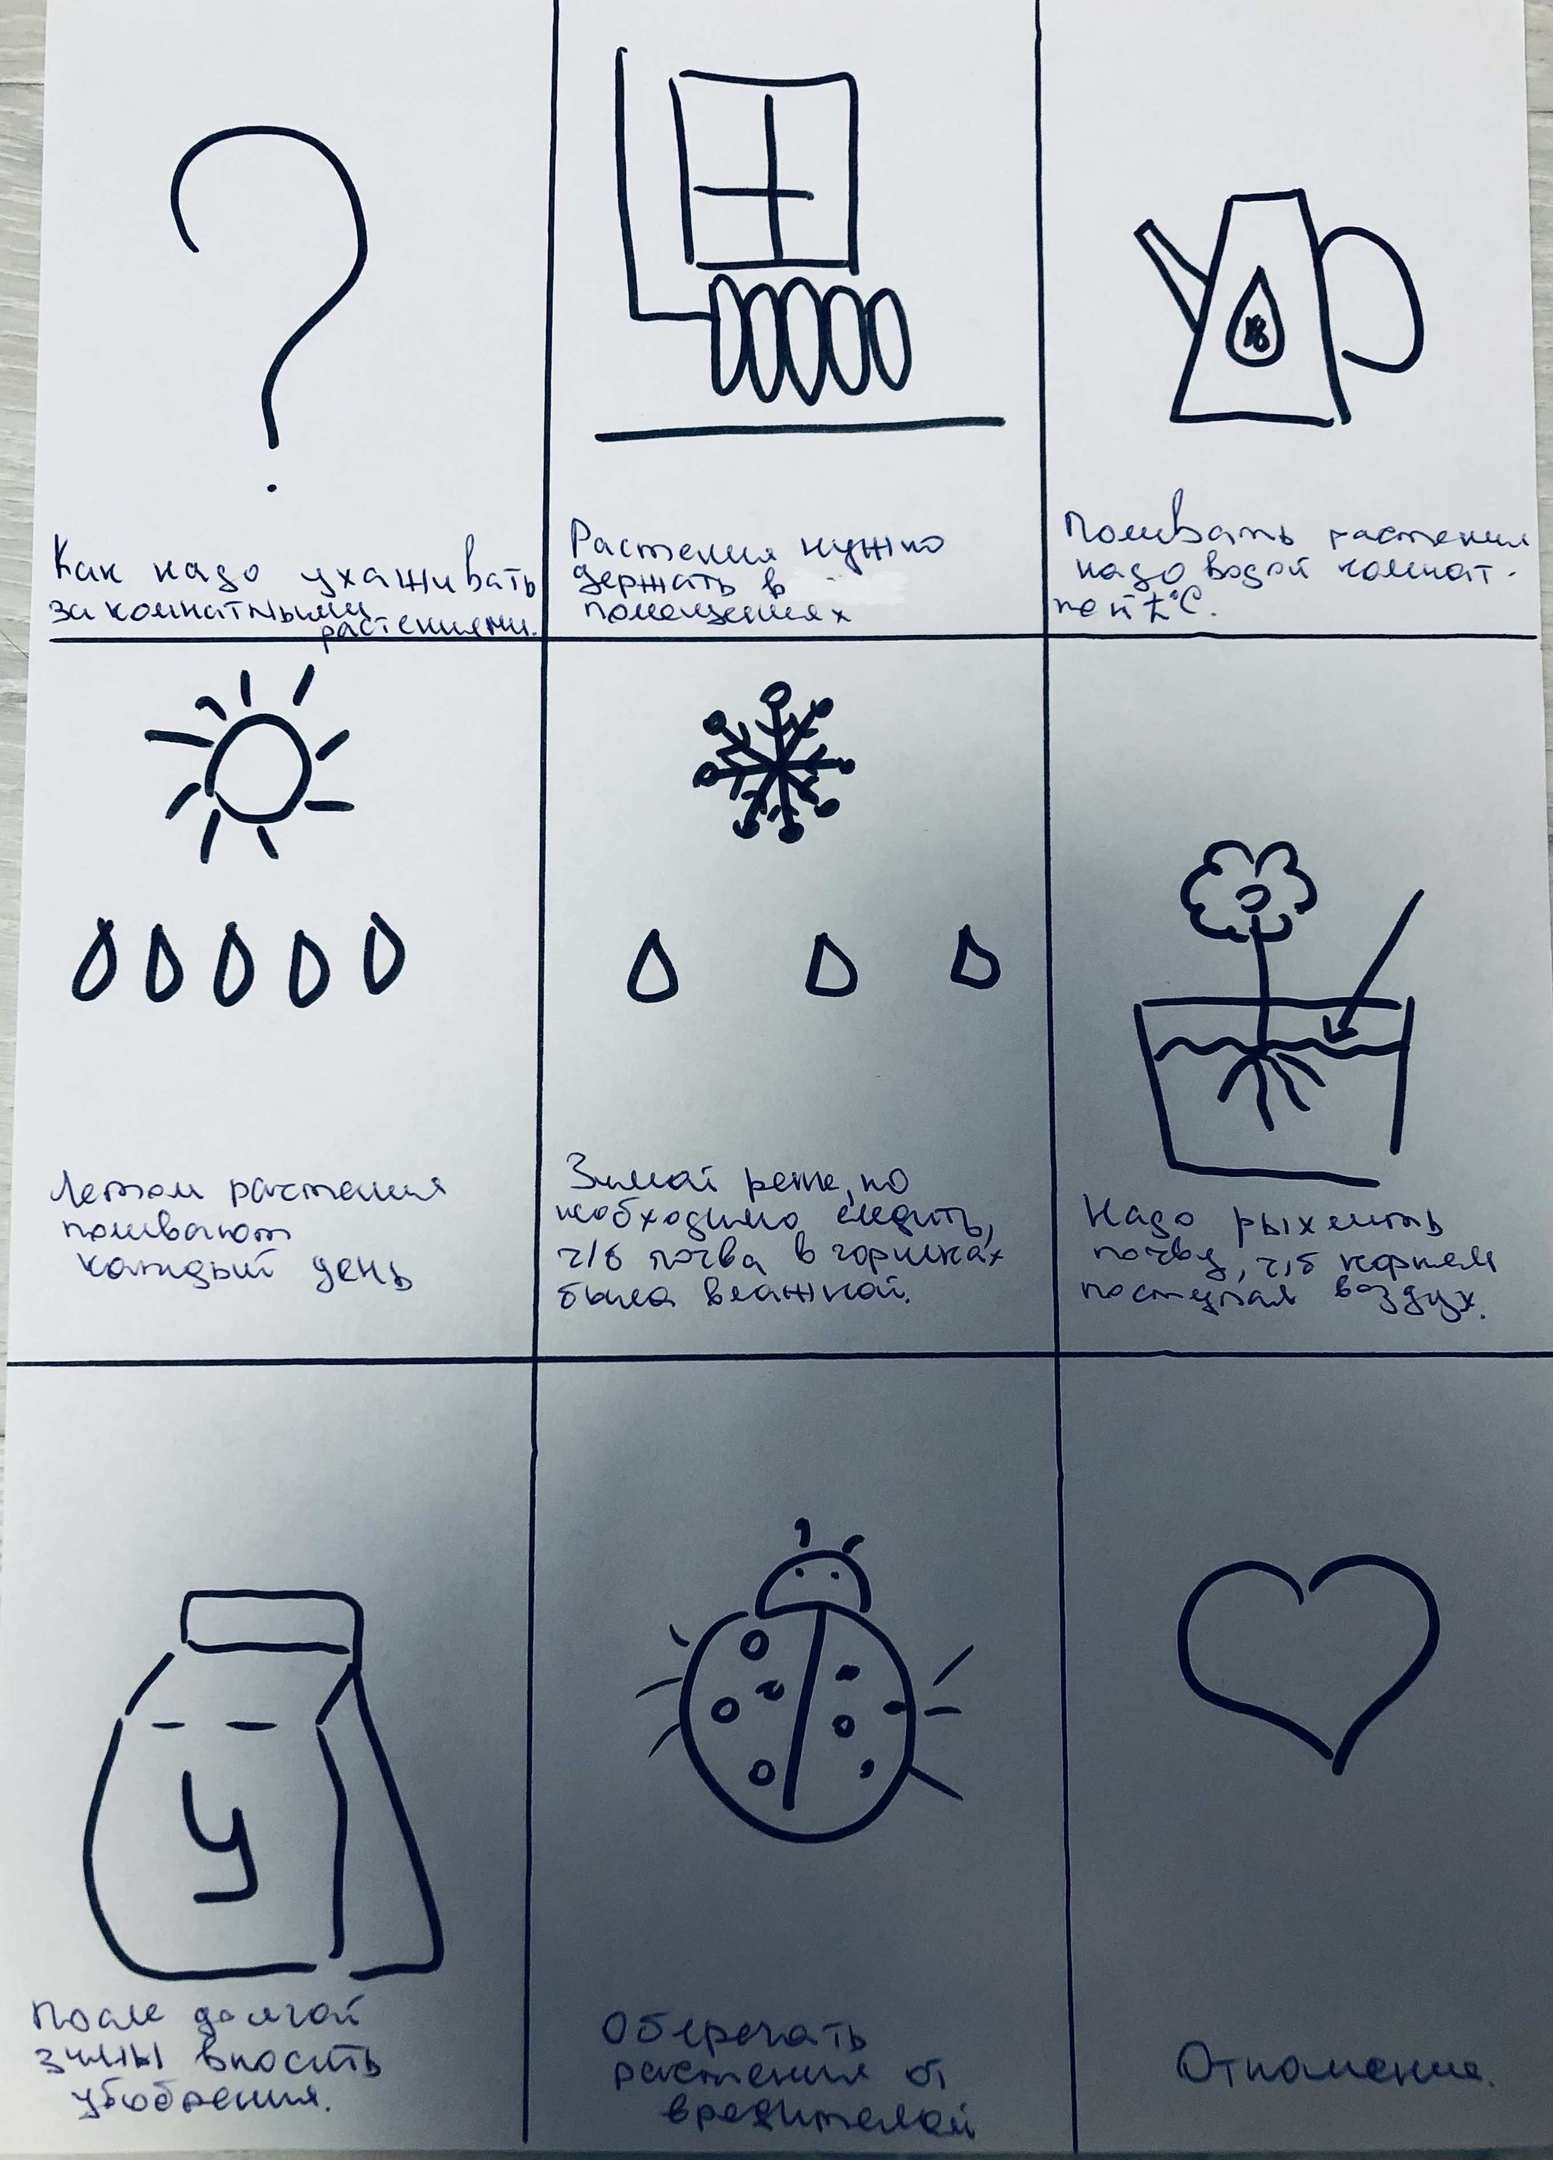 Как надо ухаживать
за комнатными
растениями.
Растения нужно
держать в
помещениях
Поливать растения
надо водой комнат-
ной t°C.
Летом растения
поливают
каждый день
Зимой реже, но
необходимо следить,
ч/б почва в горшках
была влажной.
Надо рыхлить
почву, ч/б корням
поступал воздух.
У
После долгой
зимы вносить
удобрения.
Оберегать
растения от
вредителей
Отношение.